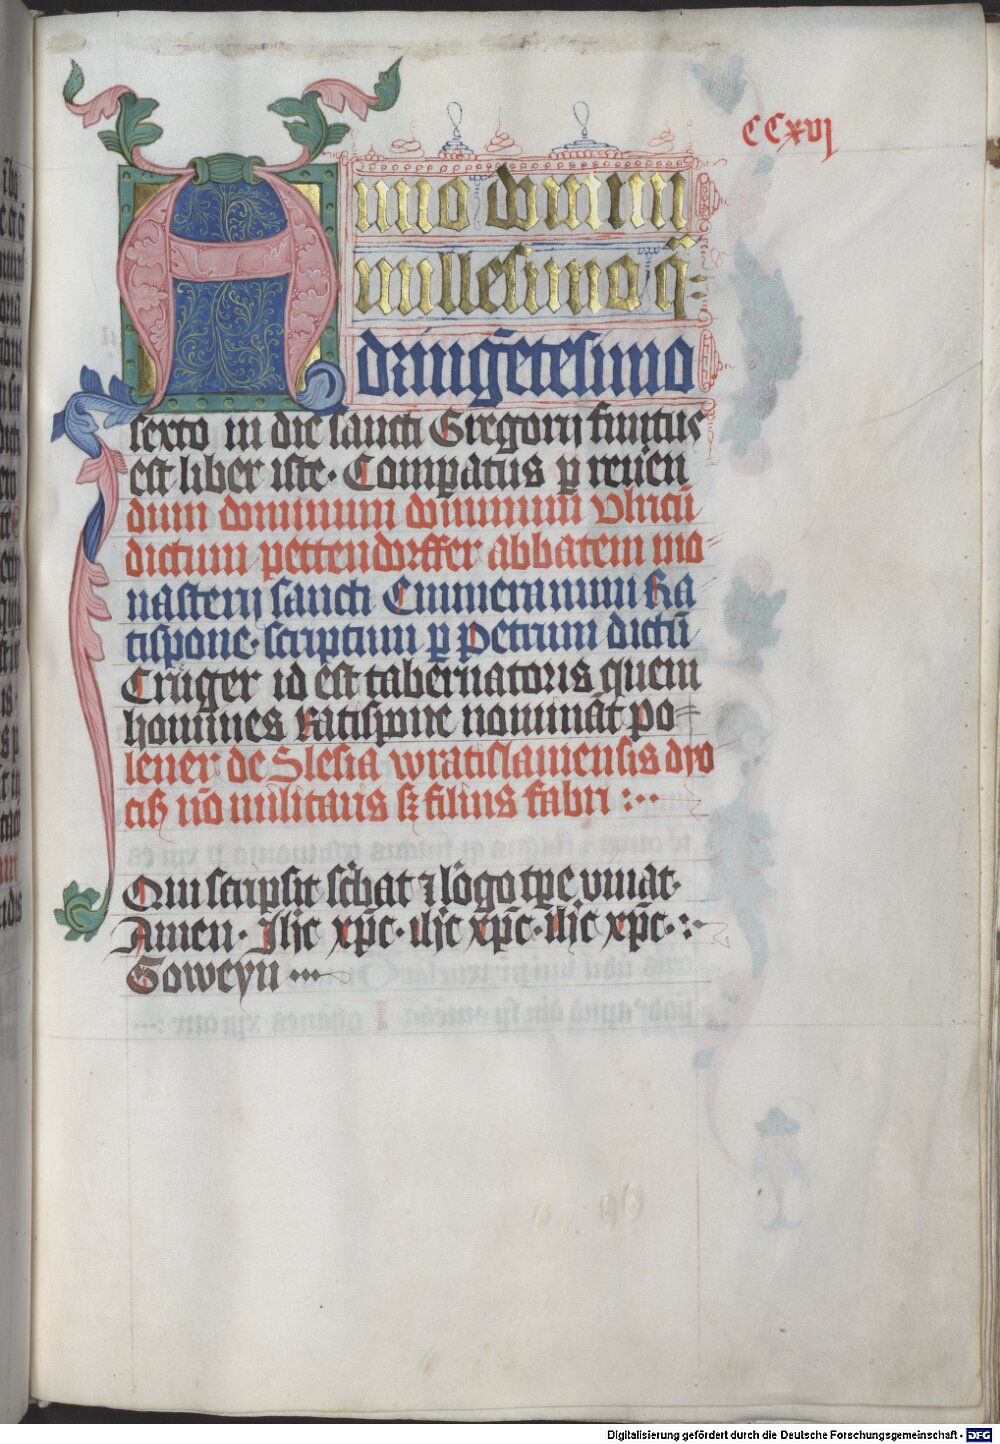 CCxvj
Anno domini
millesimo q̄
dringētesimo
sexto in die sancti Gregorij finitus
est liber iste. Comparatus ꝑ reueren
dum dominum dominum Vlricū
dictum pettendorffer abbatem mo
nasterij sancti Emmerammi Ra
tispone. scriptum ꝑ Petrum dictū
Crüger id est tabernatoris quem
homines Ratispone nomināt po=
lener de Slesia wratislauiensis dyo
cīs nō militaris sꝫ filius fabri :..
Qui scripsit sc̄bat ⁊ lōgo tꝑe viuat.
Amen. Jħc xp̄c. iħc xp̄c. iħc xp̄c. :.
Goweyn ...
Digitalisierung gefördert durch die Deutsche Forschungsgemeinschaft -
DFG